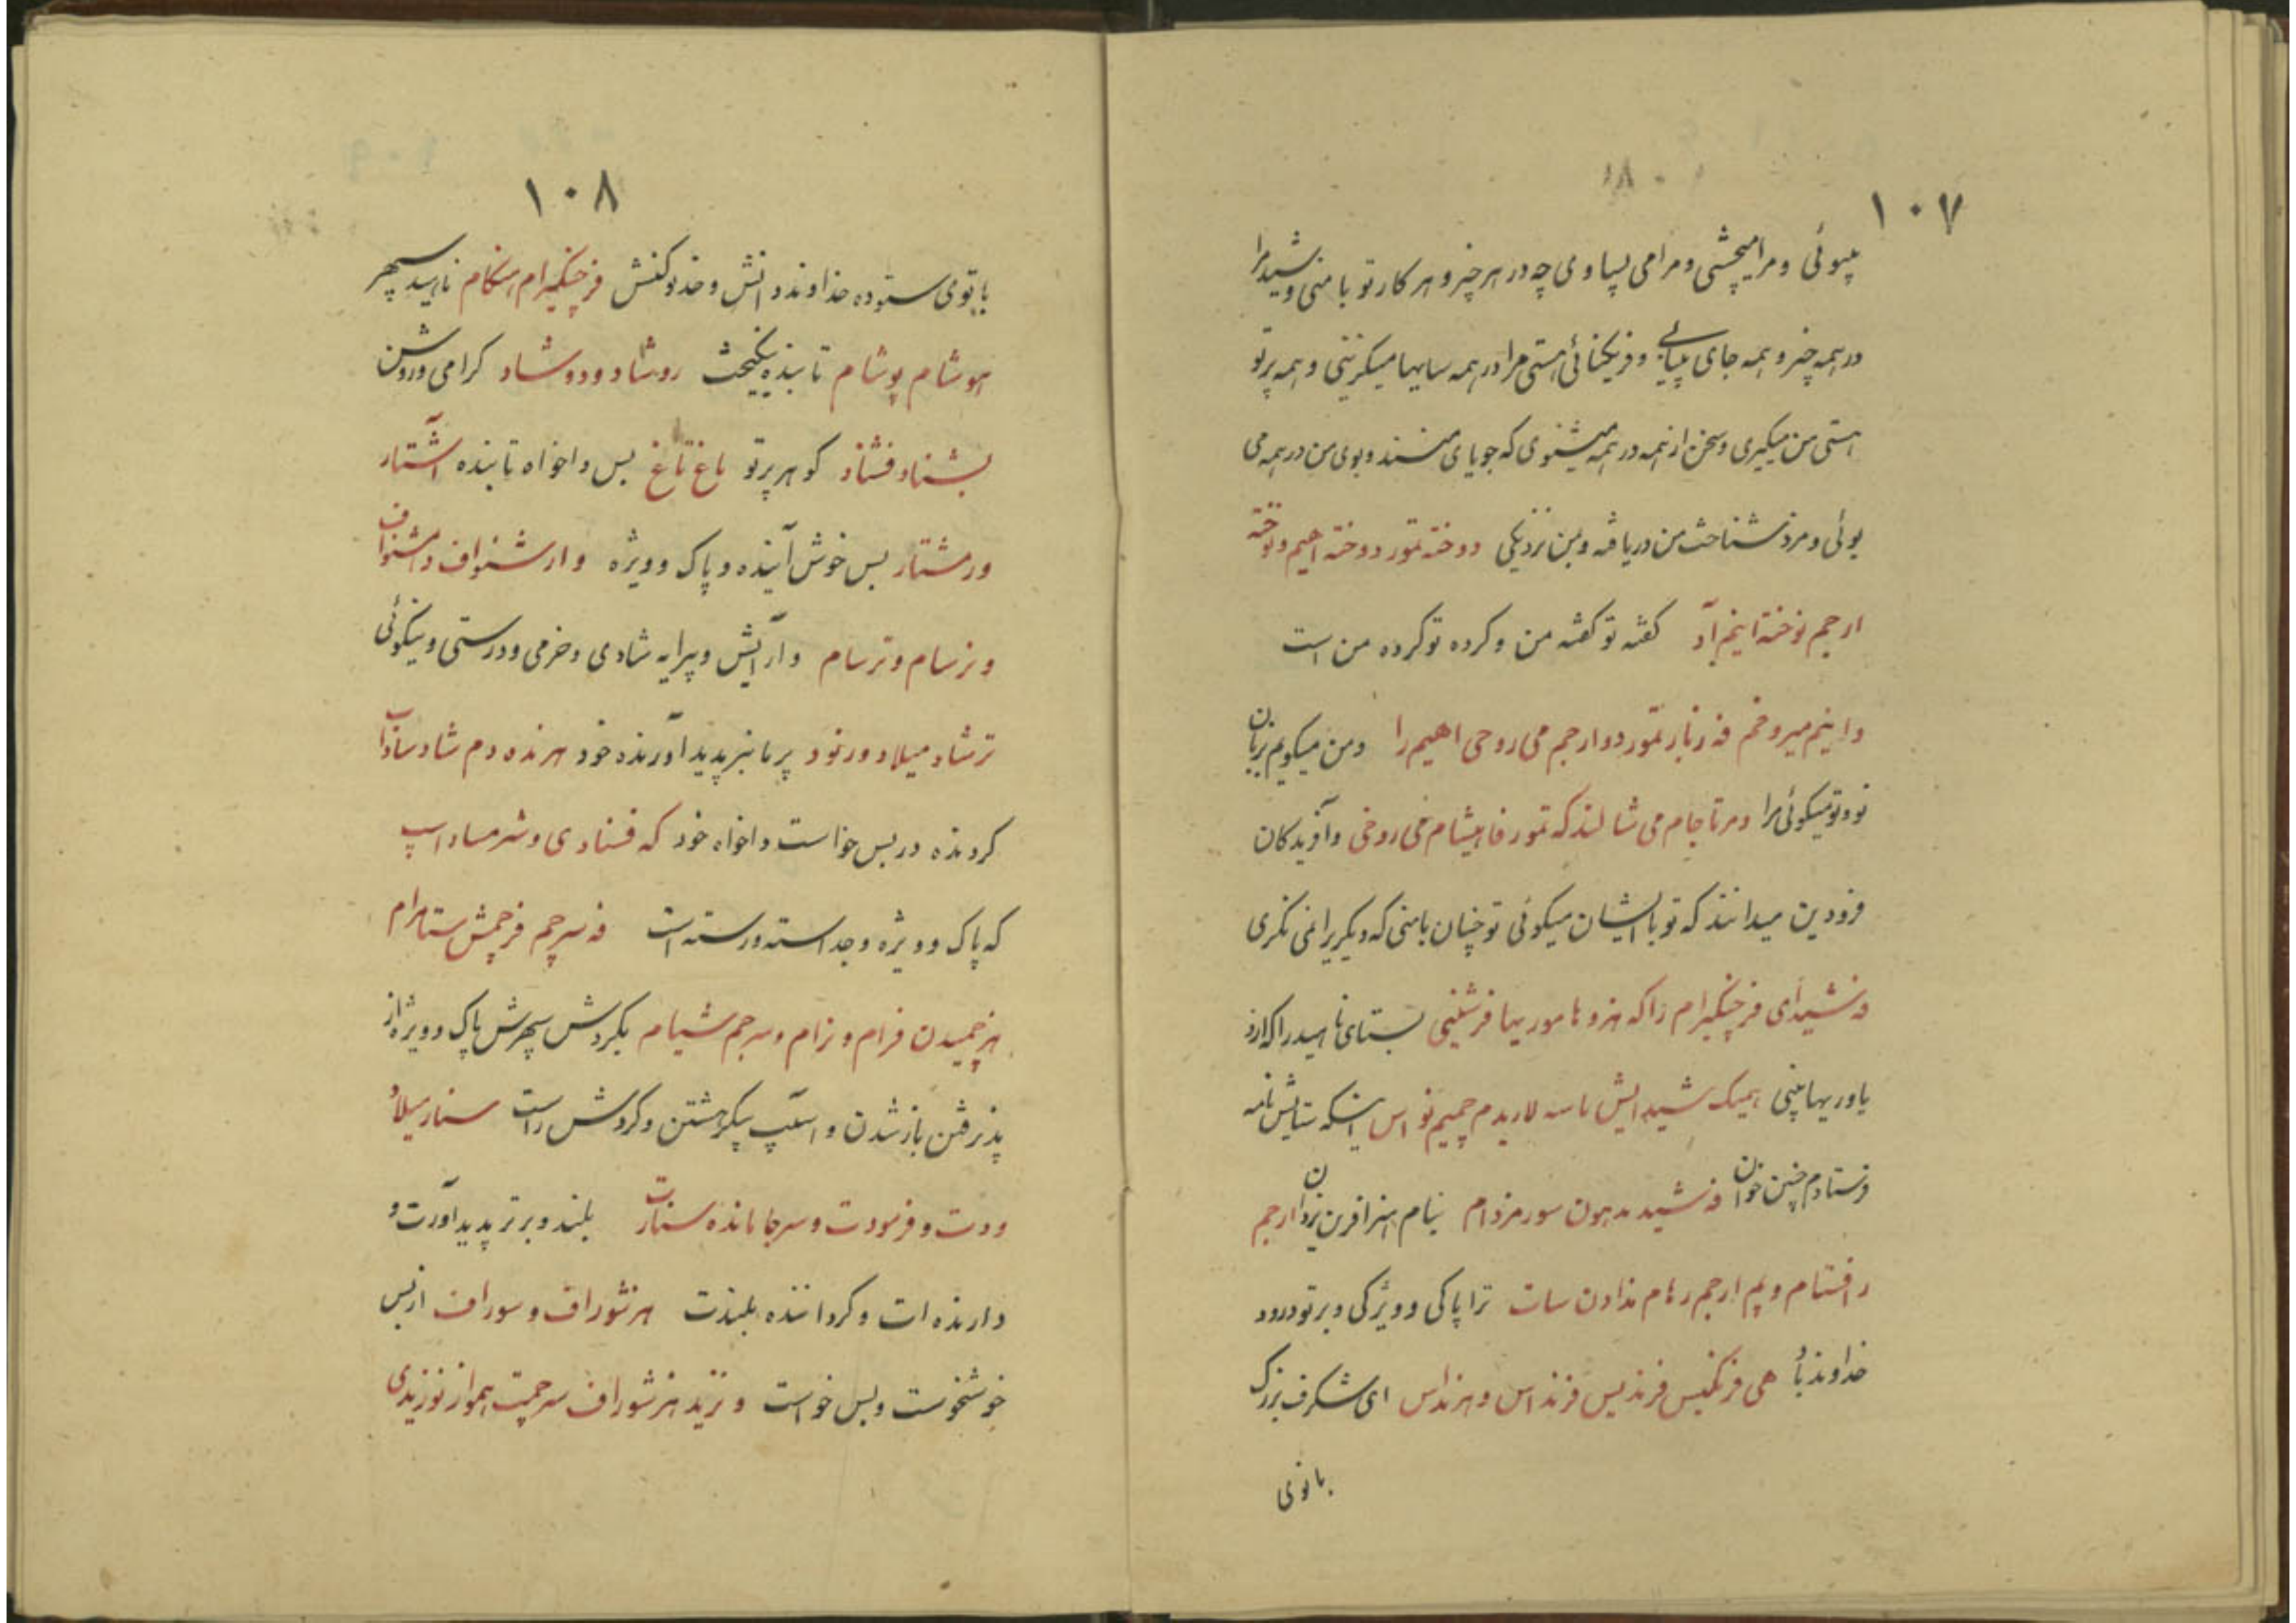 ۱۰۷
پیوئی و مرا میچشی و مرا می پساوی چه در هر چیز و هر کار تو با منی و شیدمرا
در همه چیز و همه جای پیابی و فریکنائی هستی مرا در همه سایها میگزینی و همه پرتو
هستی من میگیری و سخن از همه در همه میشنوی که جویای منند و بوی من در همه می
بوئی و مزد شناخت من دریافه و بمن نزدیکی دوخته تمور دوخته اهیم و توخته
ارجم نوخته اینم آد گفته تو گفته من و کرده تو کرده من است
و اینم میروخم فه زبار تمور دوارجم می روحی اهیم را و من میگویم بزبان
تو و تو میگوئی مرا و مرتاجام می شالند که تمور فاهیشام می روخی و آفریدگان
فرودین میدانند که تو با ایشان میگوئی تو چنان با منی که دیگریرا نمی نگری
فه شیدای فرچنگیرام را که هزو هاموریها فرشنیی بستای ناهید را که ازو
یاوریها بینی همیک شیدایش ناسه لاریدم چمیم نو اس اینکه ستایش نامه
فرستادم چنین خوان فه شید مدهون سور مزدام بنام هنر آفرین یزدان ارجم
رافستام و لم ارجم رهام مذادن سات ترا پاکی و ویژگی و بر تو درود
خداوند باد هی فرنکیس فرندیس فرنداس و هرنداس ای شگرف بزرگ
بانوی
۱۰۸
بانوی ستوده خداوند دانش و خدو کنش فرجنگیرام امنکام ناهید سپهر
هوشام پوشام تابنده نیکبخت روشاد و دوشاد گرامی و روشن
بشناد فشناد گوهر پرتو باغ تاغ بس داخواه تابنده آشتار
ورمشتار بس خوش آینده و پاک و ویژه و ارشنواف دمشنواف
وزسام و ترسام و آرایش و پیرایه شادی و خرمی و درستی و نیکوئی
ترشاد میلاد ورنود پرمانبر پدید آورنده خود هرنده دم شادساداب
گردنده در بس خواست داخواه خود که فسنادی و شرمساد اسپ
که پاک و ویژه و جداسته و رسته است فه سرچم فرچمش ستاهرام
هزچمیدن فرام و نرام و سرجم شیام بگردش سپهرش پاک و ویژه از
پذیرفتن باز شدن و اسپ پیکر هشتن و گردش راست سنار میلاد
ودت و فرمودت و سرجاماند ه سنارت بلند و برتر پدید آورت و
دارنده ات و گرداننده بلندت هرشوراف و سوراف از بس
خوشخوست و بس خواست و نزید هزشوراف سرحمت هموار نوزیدی